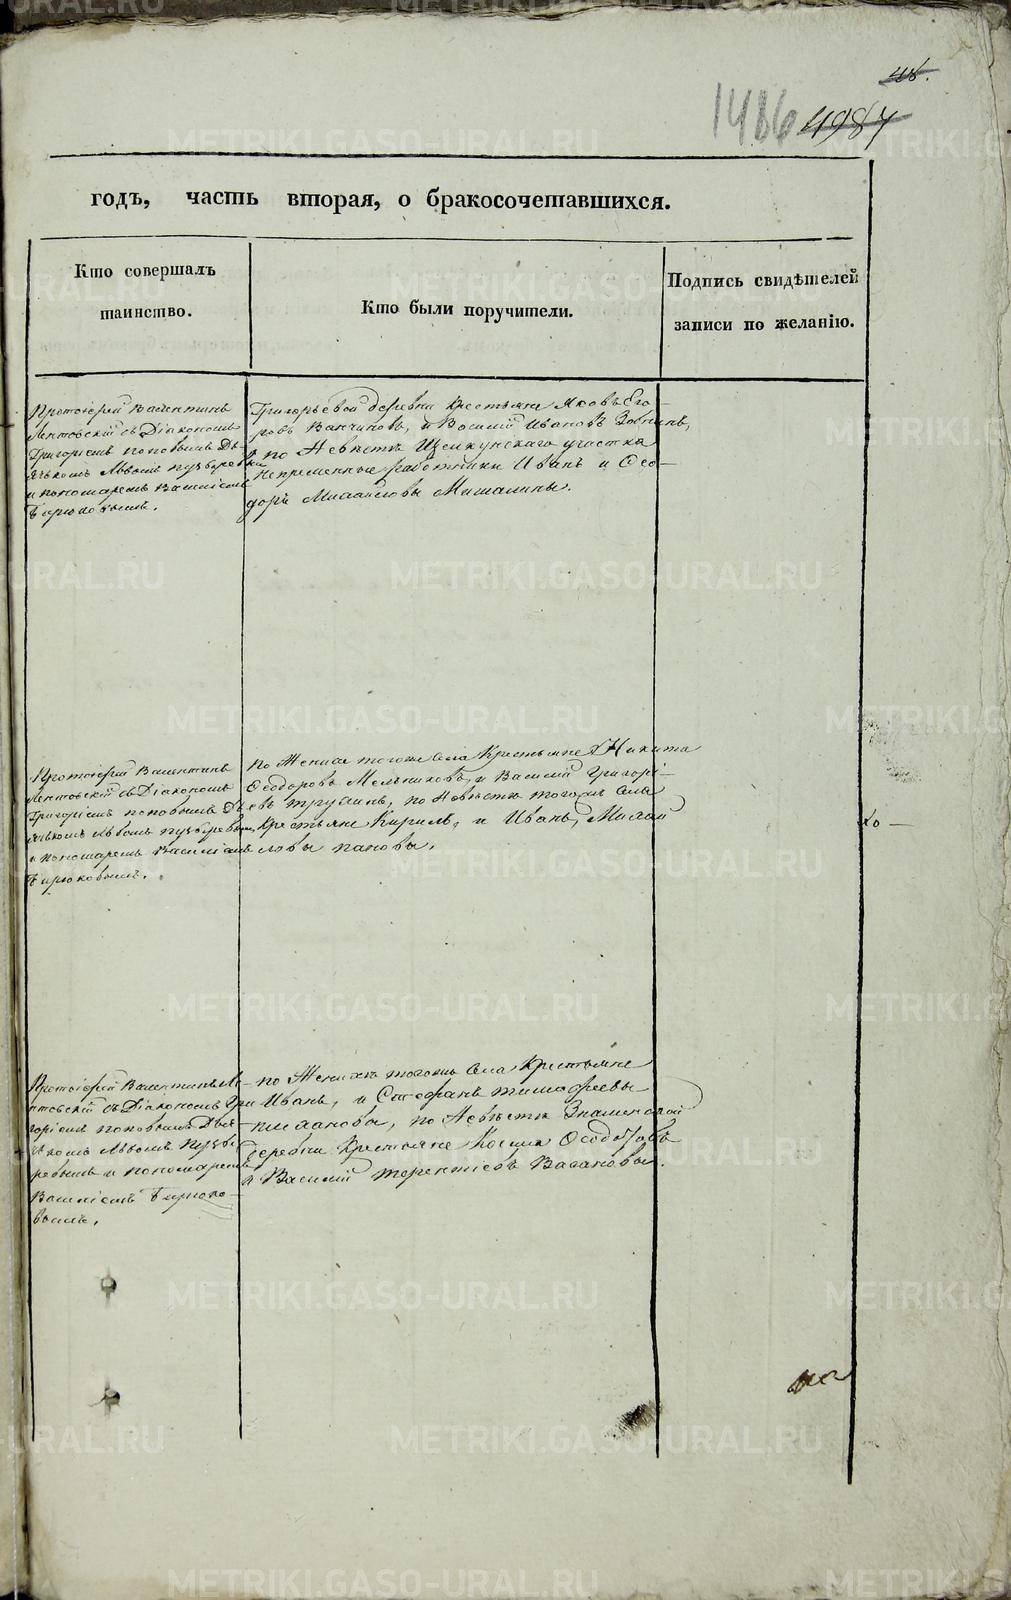 1486 4984
годъ, часть вторая, о бракосочетавшихся.
Кто совершалъ
таинство.
Кто были поручители.
Подпись свидѣтелей
записи по желанію.
Протоіерей Валентинъ
Лентовскій съ Діакономъ
Григоріемъ Поповымъ Дь
ячькомъ Львомъ Пузыревы
и пономаремъ Василіемъ
Бирюковымъ.
Григорьевой деревни Крестьяне Яковъ Его-
ровъ Ванчиновъ, и Василій Ивановъ Зобнинъ,
по Невѣстѣ Щелкунскаго участка
Непременные работники Иванъ и Ѳео-
доръ Михаиловы Мишалины.
Протоіерей Валентинъ
Лентовскій съ Діакономъ
Григоріемъ Поповымъ Дь
ячькомъ Львомъ Пузыревым
и пономаремъ Василіемъ
Бирюковымъ.
по Женихѣ тогоже села Крестьяне Никита
Ѳеодоровъ Мельниковъ, и Василій Григорі-
евъ Трусинъ, по Невѣстѣ тогожъ села
Крестьяне Кирилъ, и Иванъ, Михаи
ловы Пановы.
Протоіерей Валентинъ Ле-
нтовскій съ Діакономъ Гри
горіемъ Поповымъ Дья
чкомъ Львомъ Пузы
ревымъ и пономаремъ
Василіемъ Бирюко-
вымъ.
по Женихѣ тогожъ села Крестьяне
Иванъ, и Стефанъ Тимофеевы
по Невѣстѣ Знаменской
деревни Крестьяне Косма Ѳеодоровъ
и Василій Терентіевъ Вагановы.
METRIKI.GASO-URAL.RU